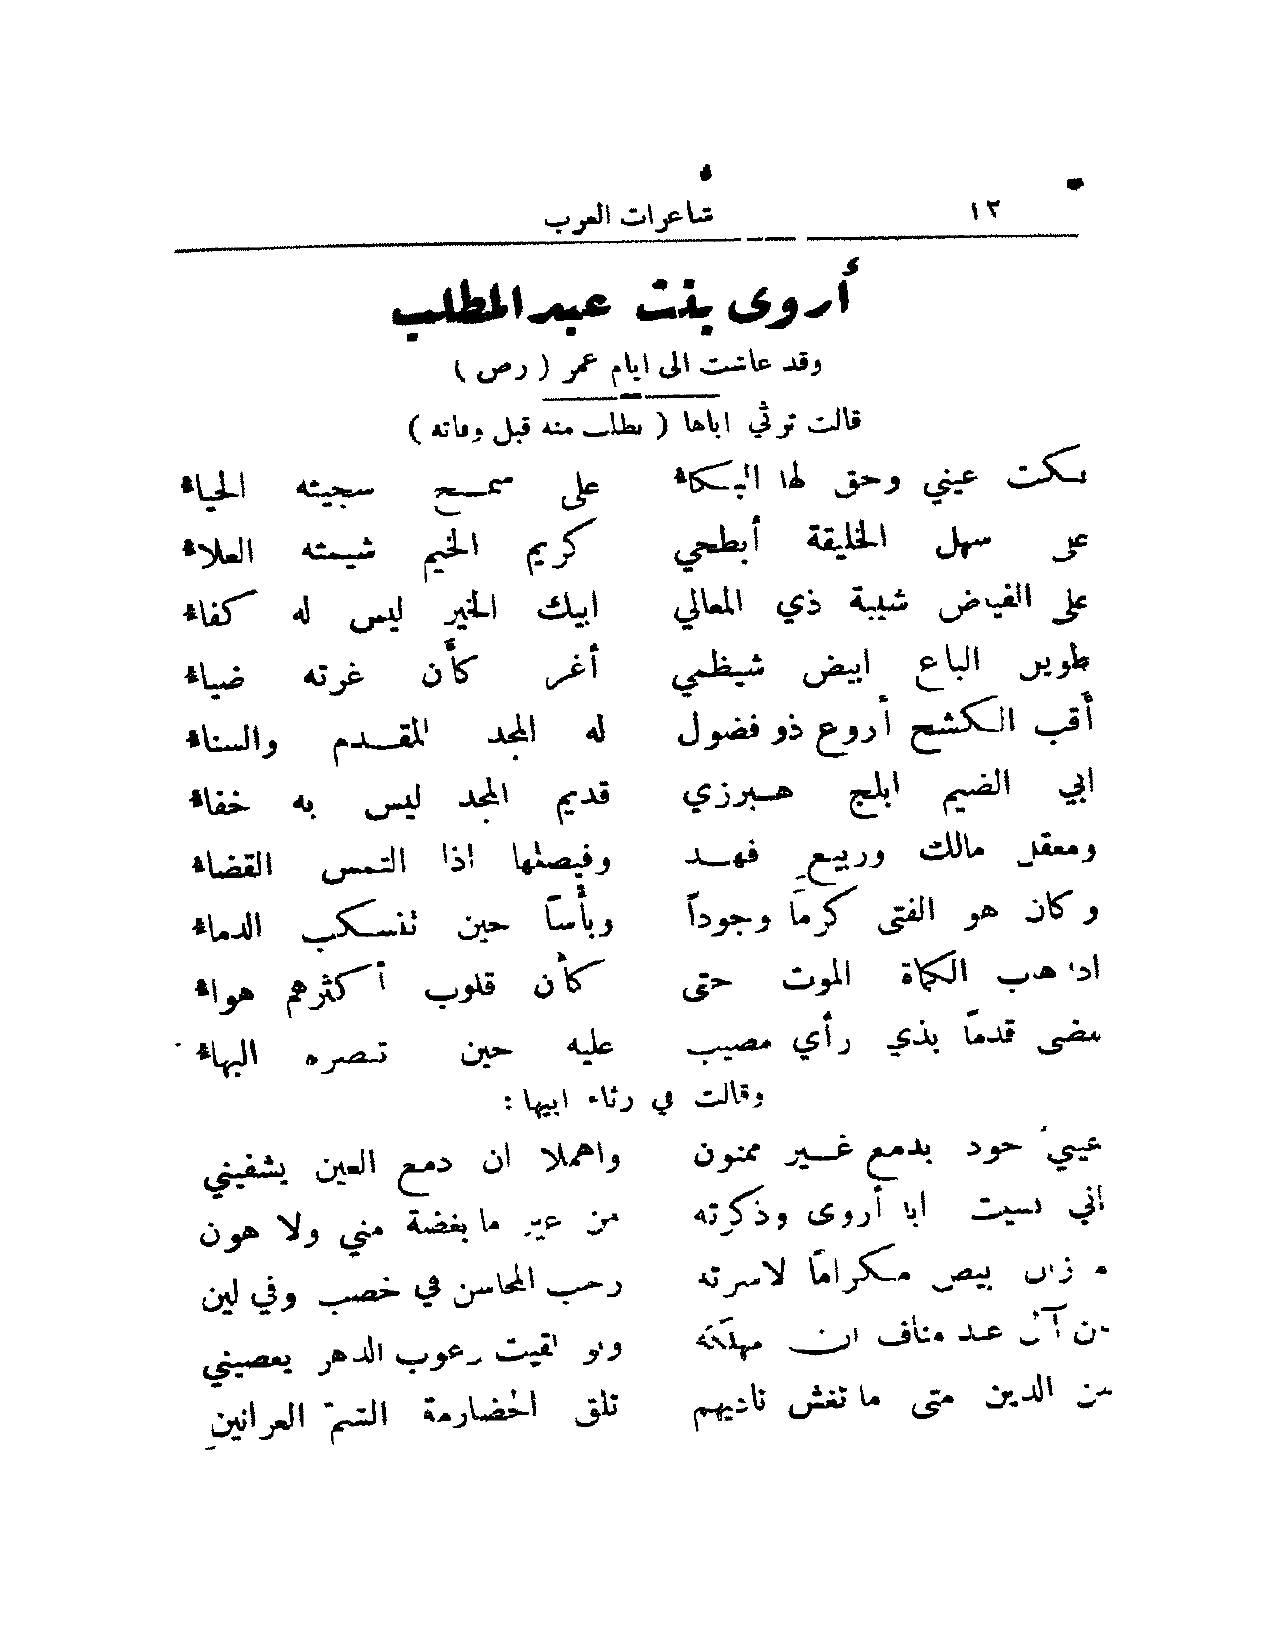 ١٢ شاعرات العرب
أروى بنت عبد المطلب
وقد عاشت الى ايام عمر ( رض )
قالت ترثي اباها ( بطلب منه قبل وفاته )
بكت عيني وحق لها البكاءُ على سمح سجيته الحياءُ
على سهل الخليقة أبطحي كريم الخيم شيمته العلاءُ
على الفياض شيبة ذي المعالي ابيك الخير ليس له كفاءُ
طويل الباع ابيض شيظمي أغر كأن غرته ضياءُ
أقب الكشح أروع ذو فضول له المجد المقدم والسناءُ
ابي الضيم ابلج هبرزي قديم المجد ليس به خفاءُ
ومعقل مالك وربيع فهد وفيصلها اذا التمس القضاءُ
وكان هو الفتى كرماً وجوداً وبأساً حين تنسكب الدماءُ
اذا هاب الكماة الموت حتى كأن قلوب أكثرهم هواءُ
مضى قدماً بذي رأي مصيب عليه حين تبصره البهاءُ
وقالت في رثاء ابيها :
عيني جود بدمع غير ممنون واهملا ان دمع العين يشفيني
اني نسيت ابا أروى وذكرته من غير ما بغضة مني ولا هون
بيض مكراماً لاسرته رحب المحاسن في خصب وفي لين
من آل عبد مناف ان مهلكه ولو لقيت رعوب الدهر يعصيني
من الذين متى ما تغش ناديهم تلق الخضارمة الشمّ العرانينِ